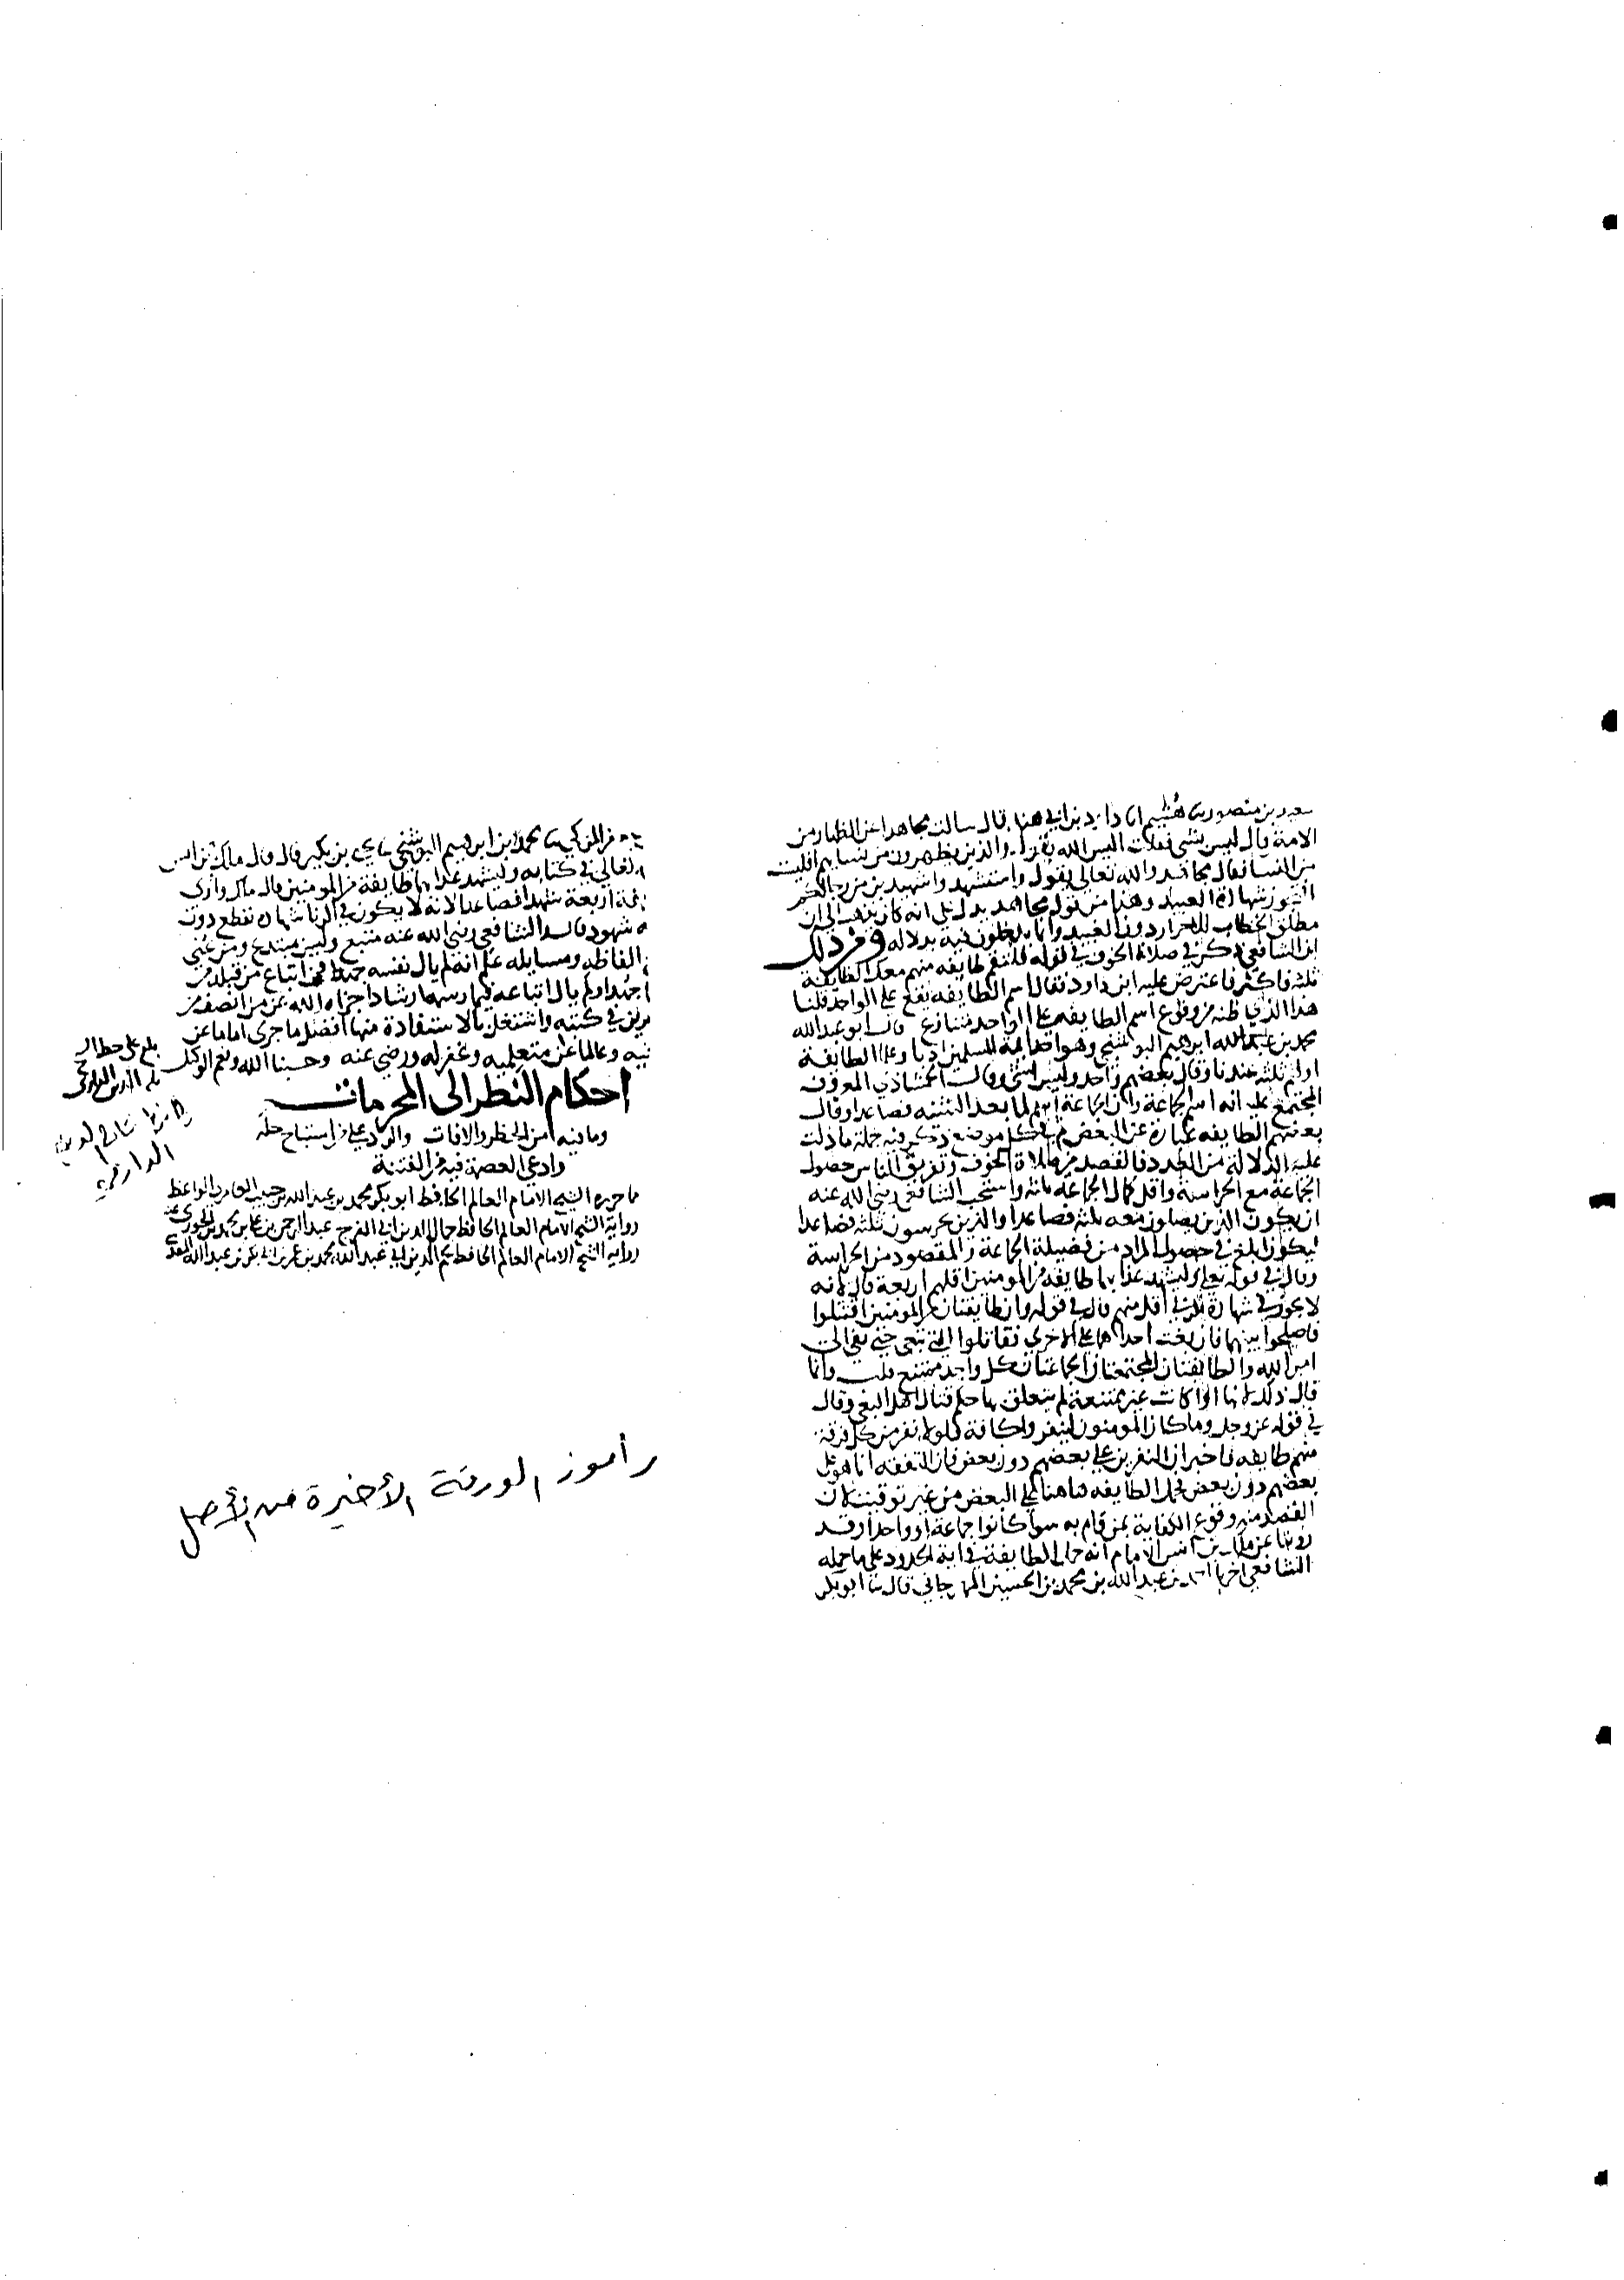 سعيد بن منصور ثنا هشيم انا داود بن ابي هند قال سالت مجاهدا عن الظهار من
الامة قال ليس بشي فقلت اليس الله يقول والذين يظهرون من نسايهم افليست
من النسا فقال مجاهد والله تعالى يقول واستشهدوا شهيدين من رجالكم
افتجوز شهادة العبيد وهذا من قول مجاهد يدل على انه كان يذهب الى ان
مطلق الخطاب للاحرار دون العبيد وانما يدخلون فيه بدلاله ومن ذلك
ان الشافعي ذكر في صلاة الخوف في قوله فلتقم طايفه منهم معك الطايفة
ثلثه فاكثر فاعترض عليه ابن داود فقال اسم الطايفه يقع على الواحد قلنا
هذا الذي ظنه من وقوع اسم الطايفه على الواحد متنازع قال ابو عبدالله
محمد بن ابرهيم البوشنجي وهو احد ايمة المسلمين ادبا وعلما الطايفة
اولهم ثلثه عندنا وقال بعضهم واحد وليس بشي وقال
المجتمع عليه انه اسم لجماعة وان الجماعة اسم لما بعد التثنيه فصاعدا وقال
بعضهم الطايفه عبارة عن البعض ثم في كل موضع ذكر فيه حمله ما دلت
عليه الدلالة من العدد فالقصد من صلاة الخوف وتفريق الناس حصول
الجماعة مع الحراسة واقل كمال الجماعه ثلثه واستحب الشافعي رضي الله عنه
ان يكون الذين يصلون معه ثلثه فصاعدا والذين يحرسون ثلثه فصاعدا
ليكون ابلغ في حصول المراد من فضيلة الجماعة والمقصود من الحراسة
وقال في قوله تعالى وليشهد عذابهما طايفه من المومنين اقلهم اربعة قال لانه
لا يجوز في شهادة الزنى اقل منهم قال في قوله وان طايفتان من المومنين اقتتلوا
فاصلحوا بينهما فان بغت احداهما على الاخرى فقاتلوا التي تبغي حتى تفي الى
امر الله والطايفتان المجتمعتان الجماعتان كل واحد ممتنع قلت وانما
قال ذلك لانها اذا كانت غير ممتنعة لم يتعلق بها حكم قتال اهل البغي وقال
في قوله عز وجل وما كان المومنون لينفروا كافة فلولا نفر من كل فرقة
منهم طايفه فاخبر ان النفير على بعضهم دون بعض وان التفقه انما هو على
بعضهم دون بعض فحمل الطايفه هاهنا على البعض من غير توقيت لان
القصد منه وقوع الكفاية بمن قام به سوا كانوا جماعة او واحدا وقد
روينا عن مالك بن انس الامام انه حمل الطايفة في اية الحدود على ما حمله
الشافعي اخبرنا احمد بن عبدالله بن محمد بن الحسين المهرجاني قال ثنا ابو بكر
بن جعفر المزكي ثنا محمد بن ابرهيم البوشنجي ثنا يحيى بن بكير قال قال مالك بن انس
تعالى في كتابه وليشهد عذابهما طايفة من المومنين قال مالك وارى
اربعة شهدا فصاعدا لانه لا يكون في الزنا شهادة تقطع دون
شهود قال الشافعي رضي الله عنه متبع وليس بمبتدع ومن
الفاظه ومسايله علم انه لم يال نفسه جهدا في اتباع من قبله
اجتهد ولم يال اتباعه فيما رسمه ارشادا جزاه الله عن من انصف
في كتبه واشتغل بالاستفادة منها افضل ما جزى اماما عن
وعالما عن متعلميه وغفر له ورضي عنه وحسبنا الله ونعم الوكيل
احكام النظر الى المحرمات
وما فيه من الخطر والافات والرد على من استباح حله
وادعى العصمة فيه من الفتنة
مما حرره الشيخ الامام العالم الحافظ ابو بكر محمد بن عبدالله بن حبيب العامري الواعظ
رواية الشيخ الامام العالم الحافظ جمال الدين ابي الفرج عبدالرحمن بن علي بن محمد بن الجوزي عنه
رواية الشيخ الامام العالم الحافظ
راموز الورقة الأخيرة من الأصل